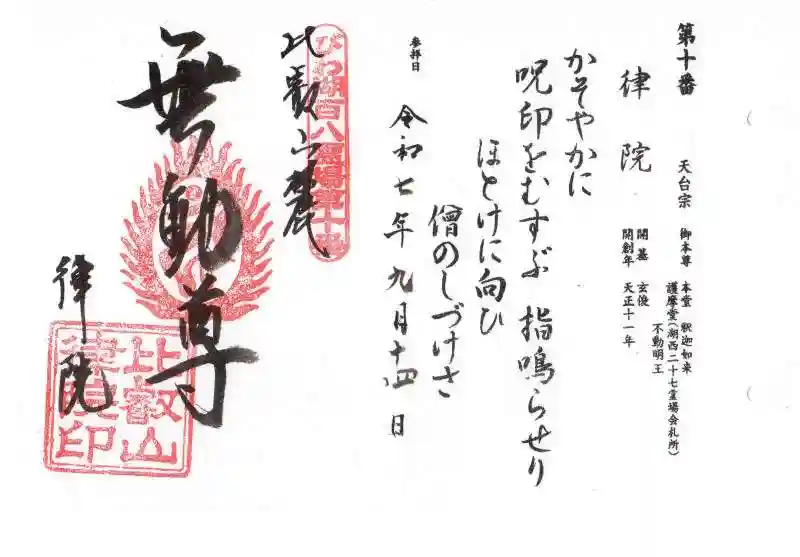 第十番
律院
天台宗
御本尊 本堂 釈迦如来
護摩堂(湖西二十七霊場会札所)
不動明王
開基 玄俊
開創年 天正十一年
かそやかに
呪印をむすぶ 指鳴らせり
ほとけに向ひ
僧のしづけさ
参拝日
令和七年九月十四日
びわ湖百八霊場第十番
比叡山麓
無動尊
律院
比叡山
律院印